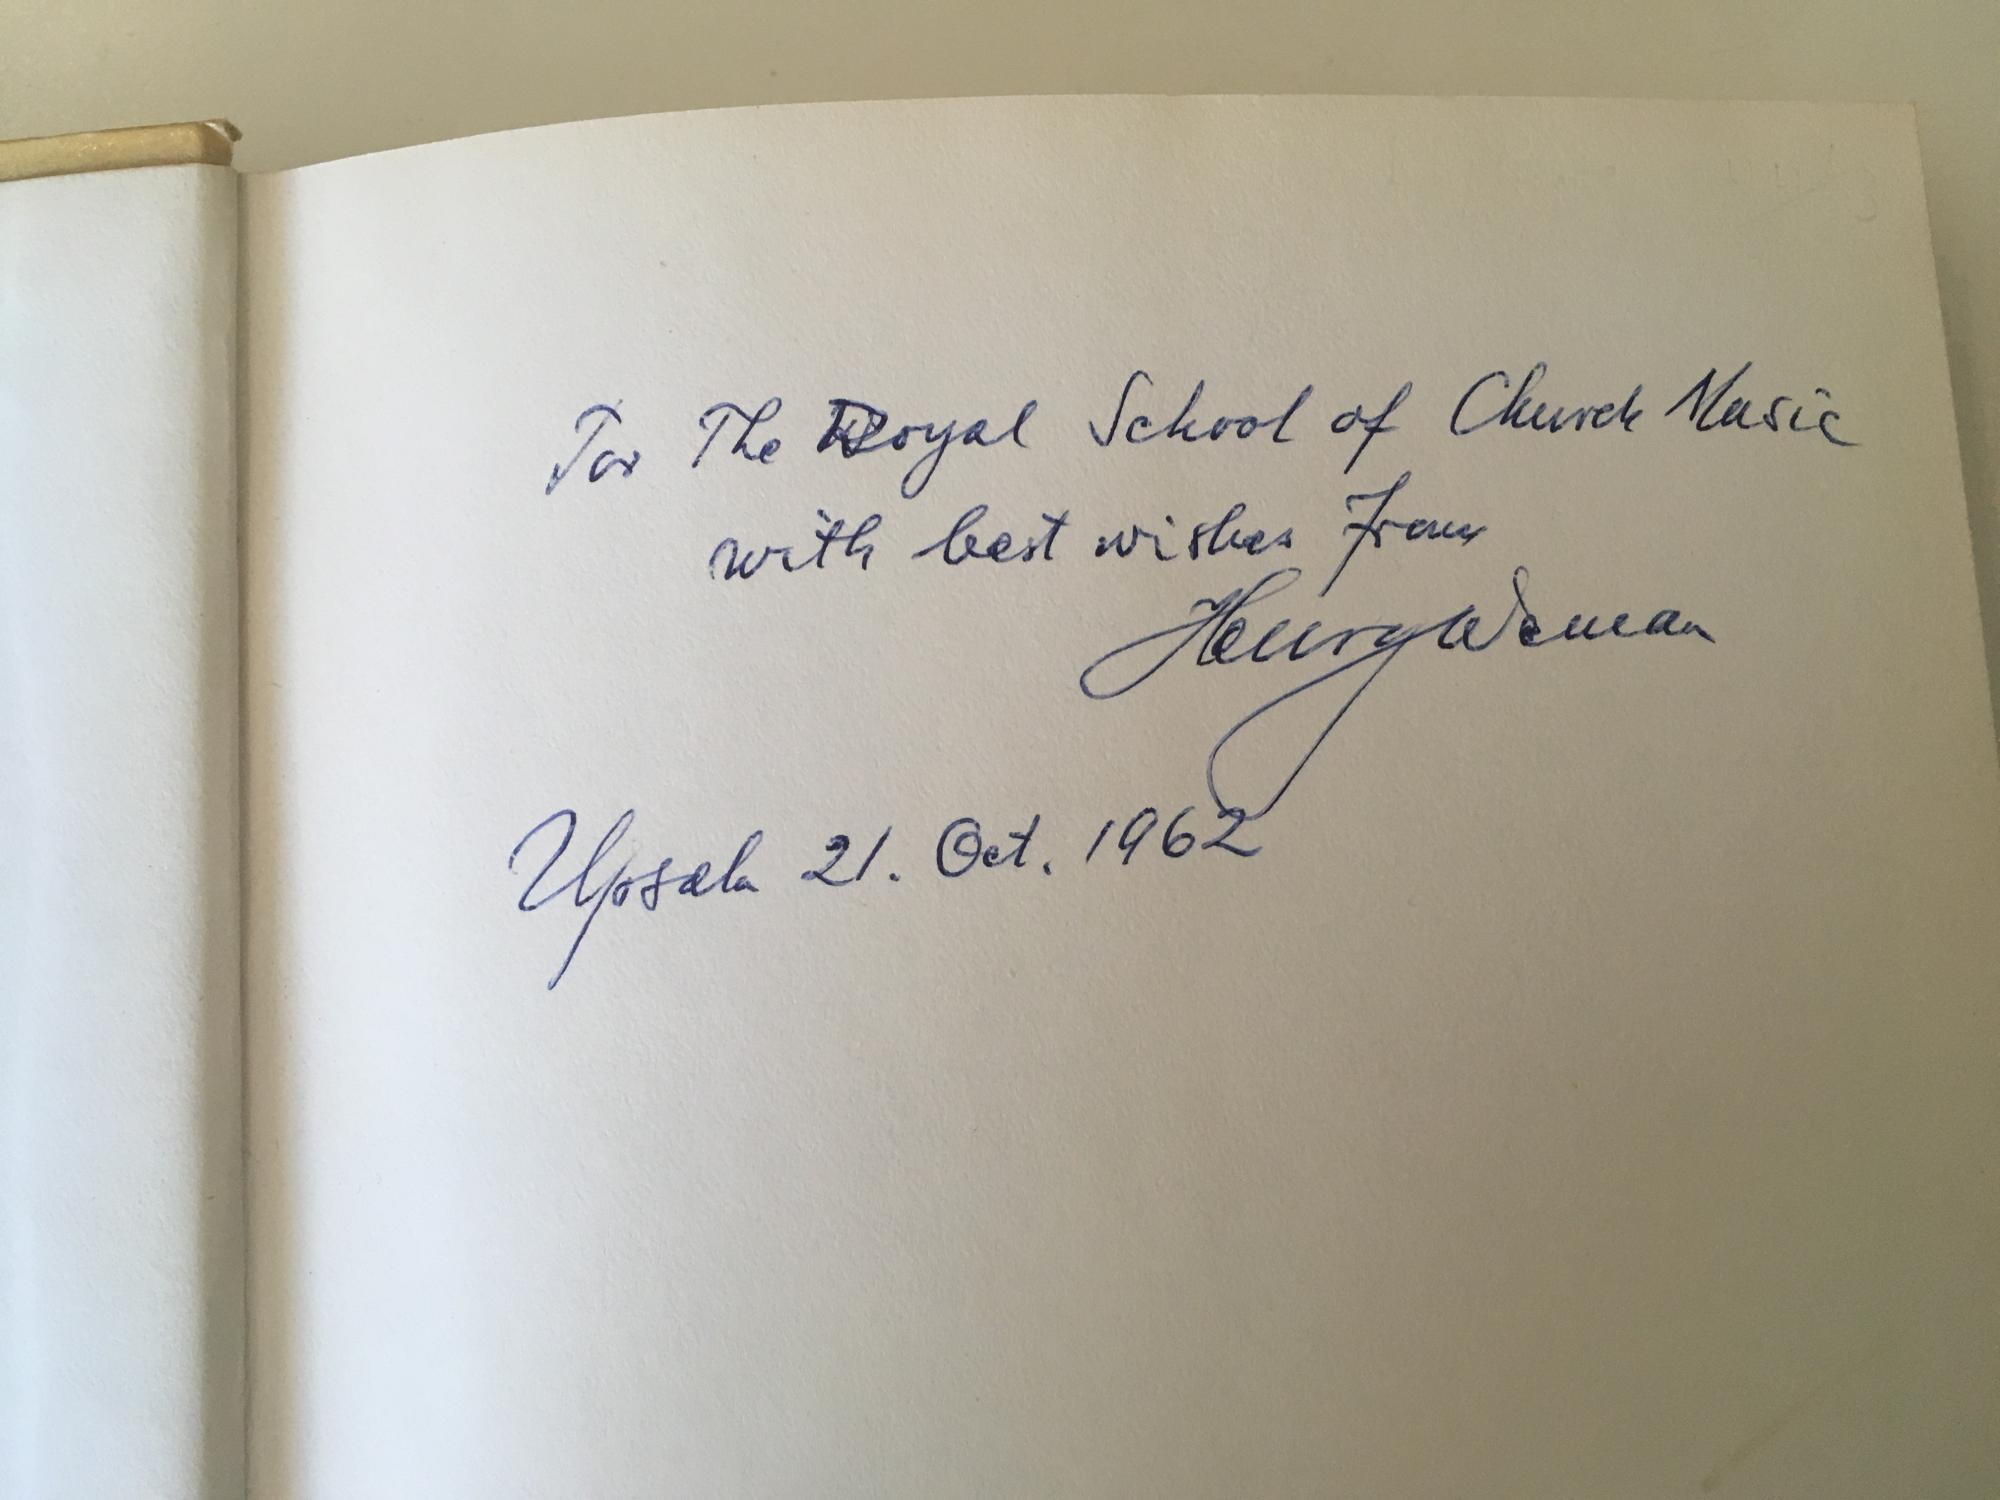 For The Royal School of Church Music
with best wishes from
Henry Weman
Upsala 21. Oct. 1962